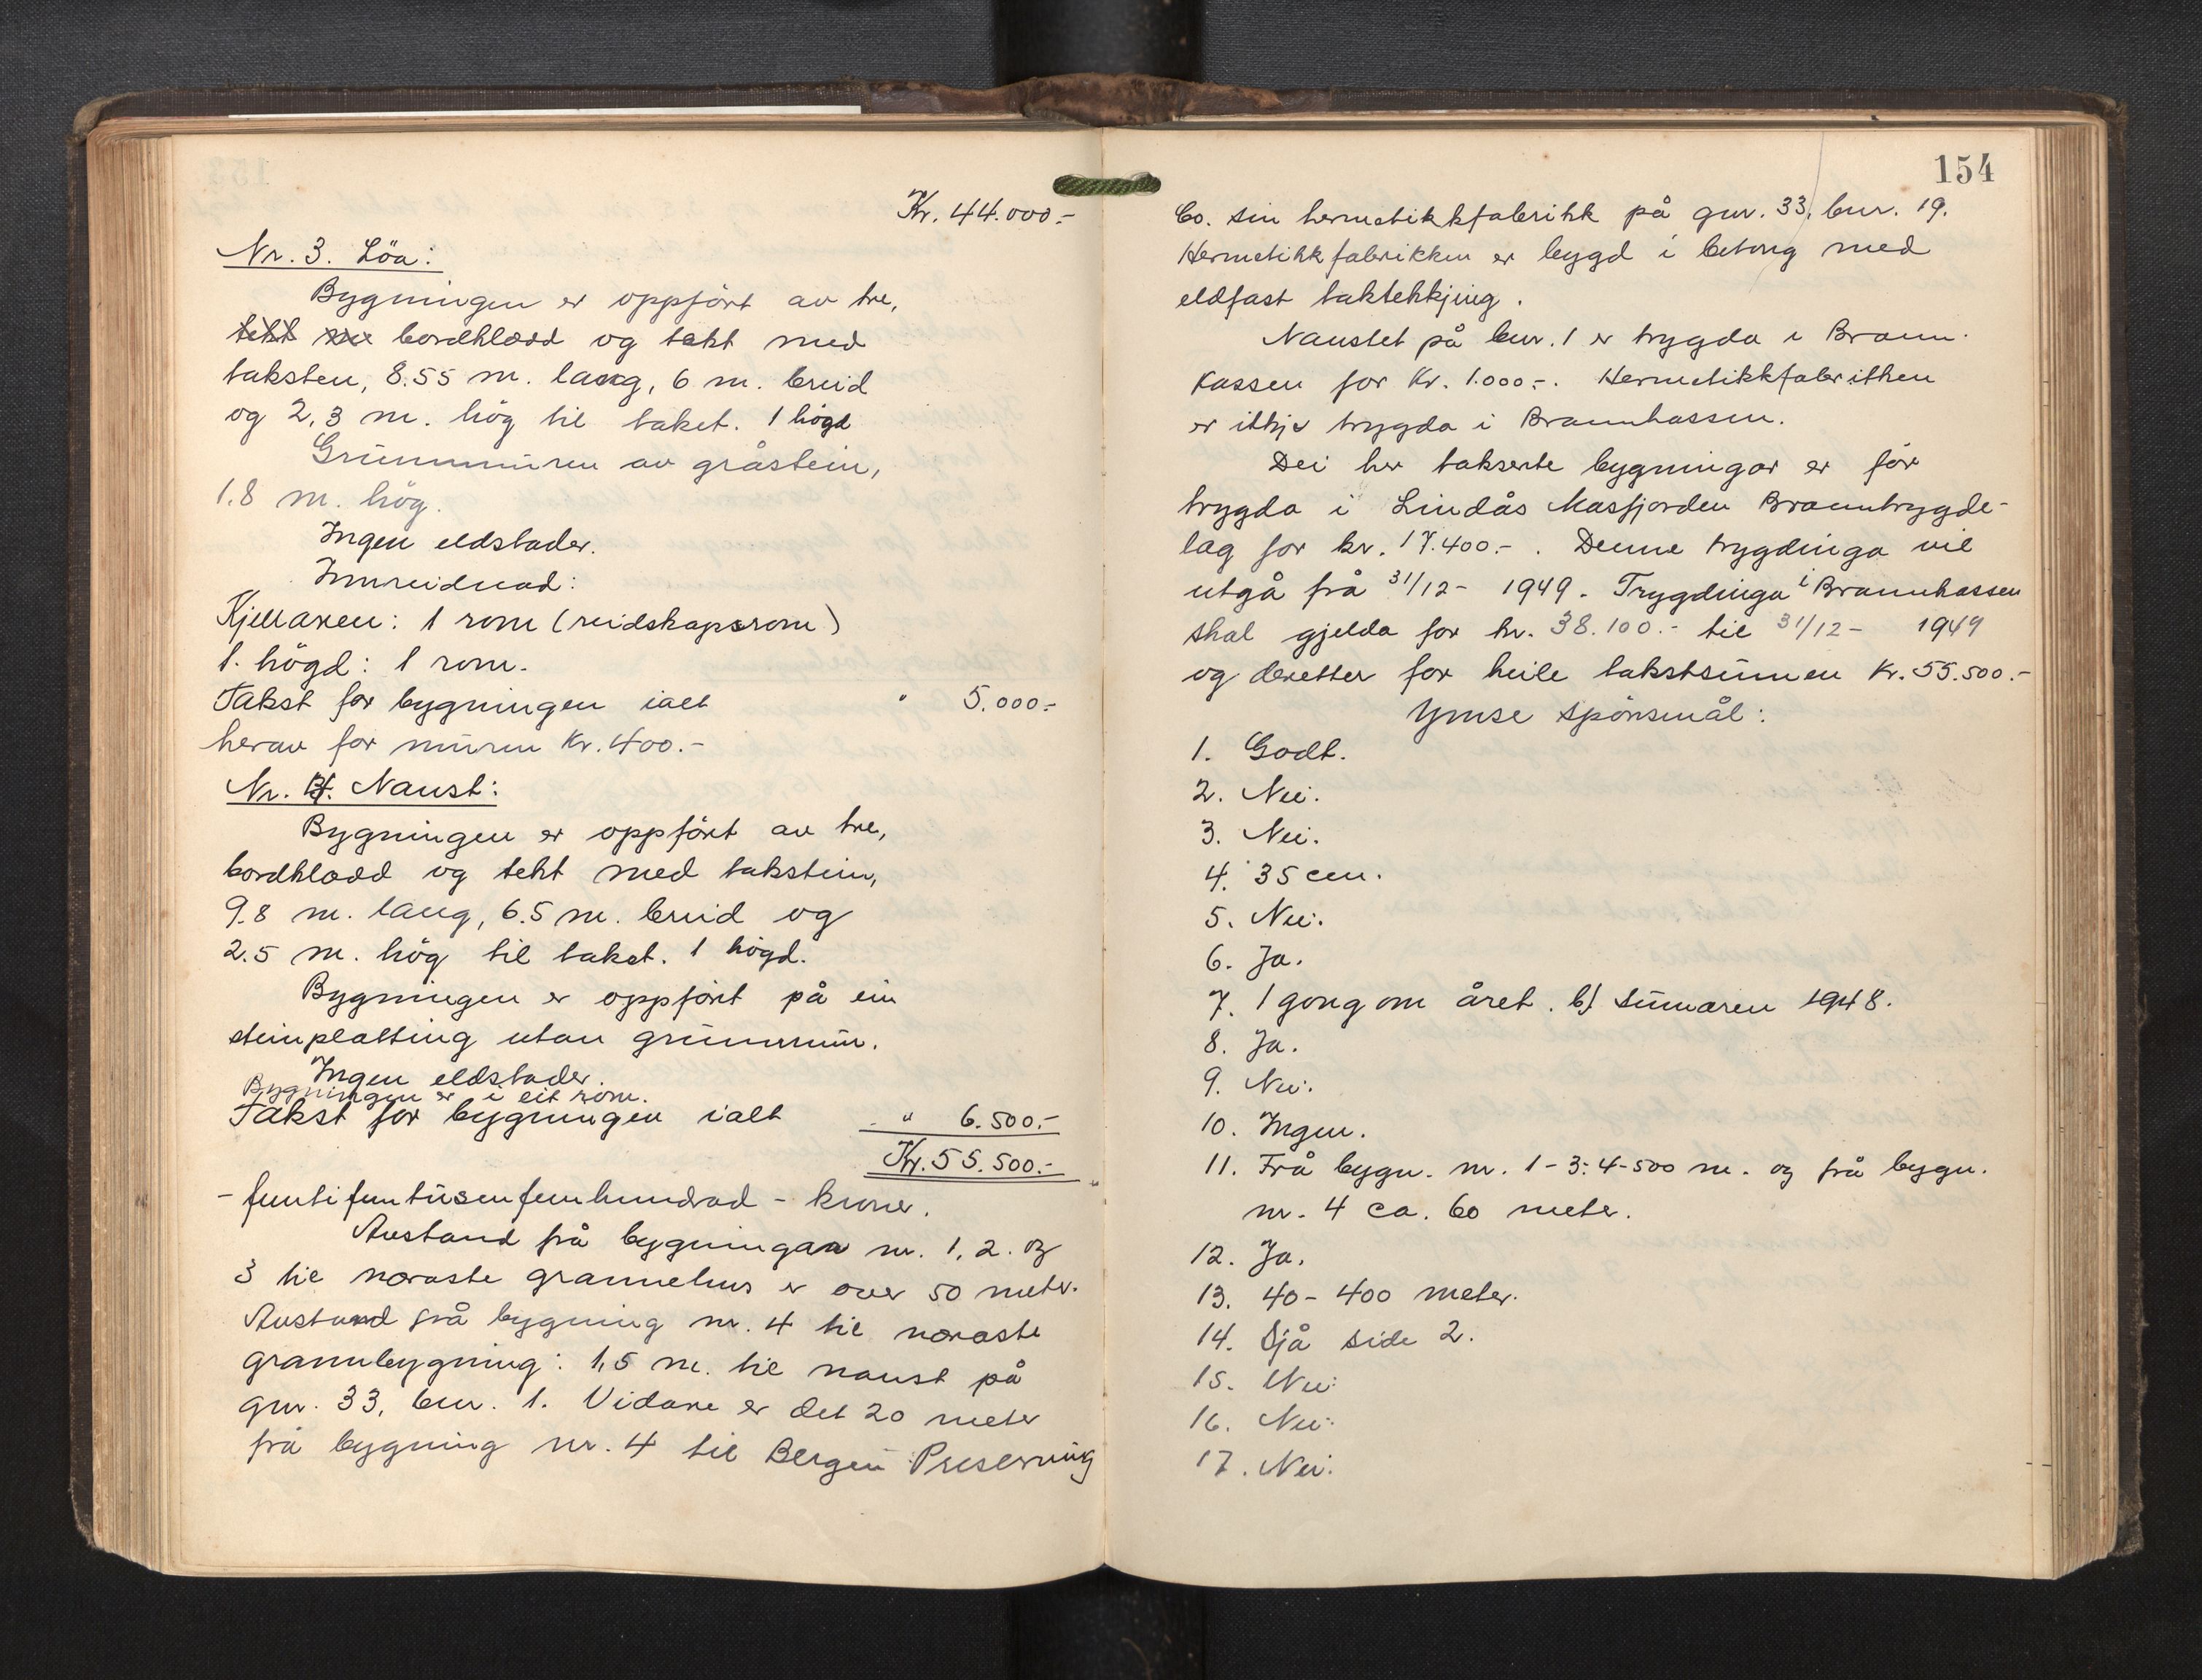 Kr. 44.000.-
Nr. 3. Löa:
Bygningen er oppfört av tre,
tekt me bordklædd og tekt med
taksten, 8.55 m. lang, 6 m. breid
og 2,3 m. hög til taket. 1 högd
Grunnmuren av gråstein,
1.8 m. hög.
Ingen eldstader.
Innreidnad:
Kjellaren: 1 rom (reidskapsrom)
1. högd: 1 rom.
Takst for bygningen ialt " 5.000.-
herav for muren Kr. 400.-
Nr. 4. Naust:
Bygningen er oppfört av tre,
bordklædd og tekt med takstein,
9.8 m. lang, 6.5 m. breid og
2.5 m. hög til taket. 1 högd.
Bygningen er oppfört på ein
steinplatting utan grunnmur.
Ingen eldstader.
Bygningen er i eit rom.
Takst for bygningen ialt " 6.500.-
Kr. 55.500.-
- femtifemtusenfemhundrad - kroner.
Avstand frå bygningar nr. 1, 2. og
3 til næraste grannehus er over 50 meter.
Avstand frå bygning nr. 4 til næraste
grannbygning: 1,5 m. til naust på
gnr. 33, bnr. 1. Vidare er det 20 meter
frå bygning nr. 4 til Bergen Preserving
154
Co. sin hermetikkfabrikk på gnr. 33, bnr. 19.
Hermetikkfabrikken er bygd i betong med
eldfast taktekkjing.
Naustet på bnr. 1 er trygda i Brann-
kassen for Kr. 1.000.-. Hermetikkfabrikken
er ikkje trygda i Brannkassen.
Dei her takserte bygningar er för
trygda i Lindås Masfjorden Branntrygde-
lag for kr. 17.400.-. Denne trygdinga vil
utgå frå 31/12- 1949. Trygdinga i Brannkassen
skal gjelda for kr. 38.100.- til 31/12- 1949
og deretter for heile takstsummen Kr. 55.500.-
Ymse spörsmål:
1. Godt.
2. Nei.
3. Nei.
4. 35 cm.
5. Nei.
6. Ja.
7. 1 gong om året. b) Sumaren 1948.
8. Ja.
9. Nei.
10. Ingen.
11. Frå bygn. nr. 1-3: 4-500 m. og frå bygn.
nr. 4 ca. 60 meter.
12. Ja.
13. 40-400 meter.
14. Sjå side 2.
15. Nei.
16. Nei.
17. Nei.